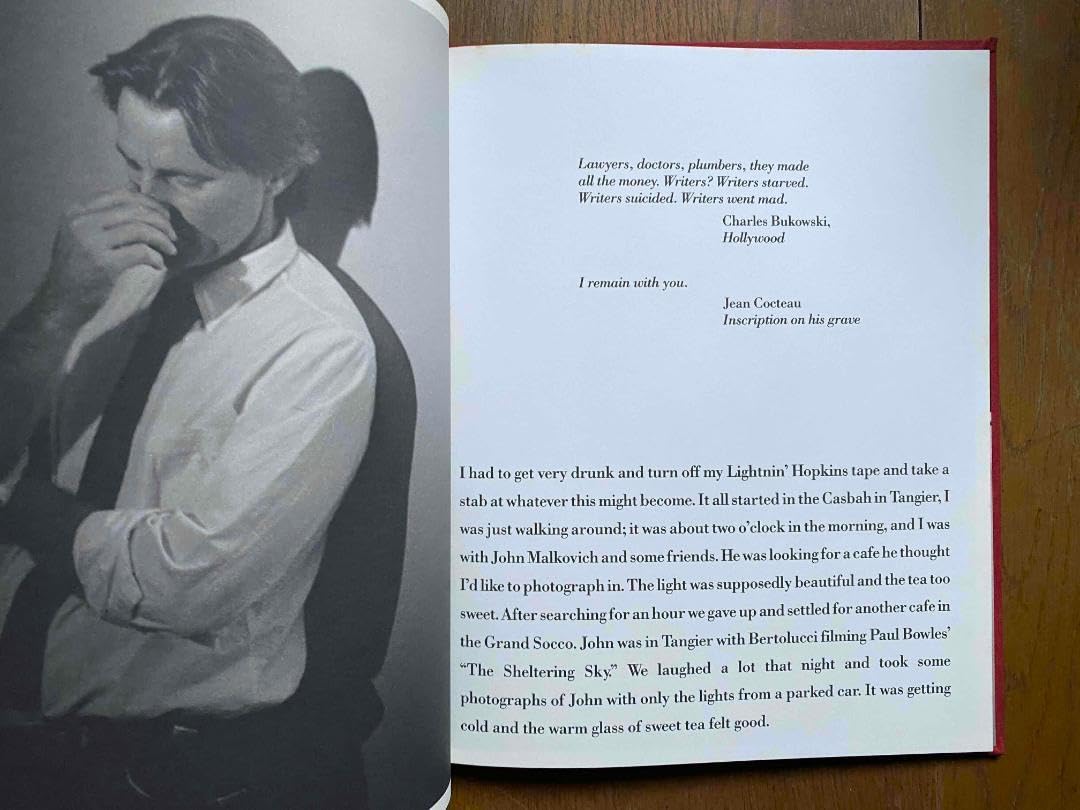 Lawyers, doctors, plumbers, they made
all the money. Writers? Writers starved.
Writers suicided. Writers went mad.
Charles Bukowski,
Hollywood
I remain with you.
Jean Cocteau
Inscription on his grave
I had to get very drunk and turn off my Lightnin’ Hopkins tape and take a
stab at whatever this might become. It all started in the Casbah in Tangier, I
was just walking around; it was about two o’clock in the morning, and I was
with John Malkovich and some friends. He was looking for a cafe he thought
I’d like to photograph in. The light was supposedly beautiful and the tea too
sweet. After searching for an hour we gave up and settled for another cafe in
the Grand Socco. John was in Tangier with Bertolucci filming Paul Bowles’
“The Sheltering Sky.” We laughed a lot that night and took some
photographs of John with only the lights from a parked car. It was getting
cold and the warm glass of sweet tea felt good.